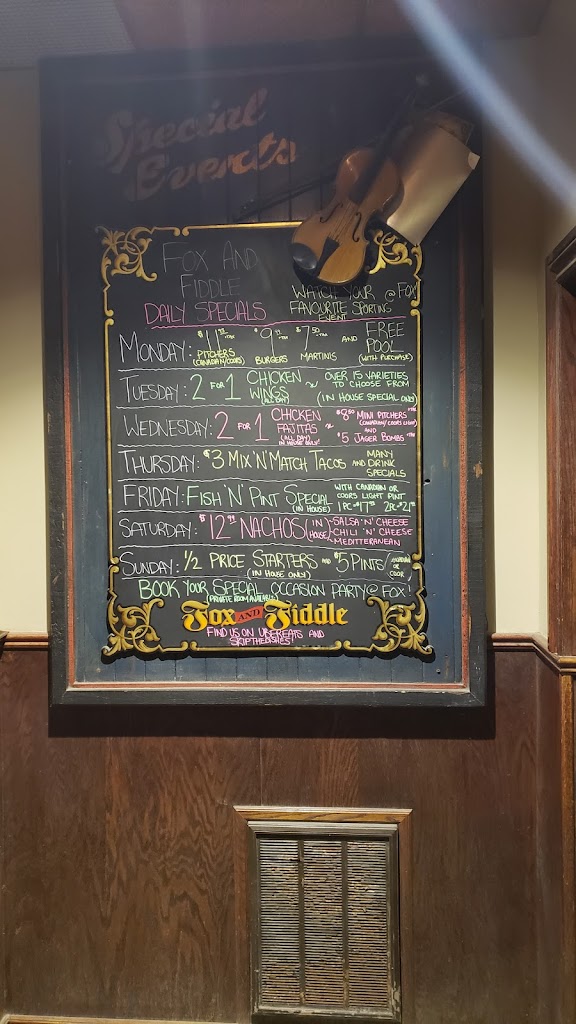 Special
Events
FOX AND
FIDDLE
DAILY SPECIALS
WATCH YOUR @ FOX
FAVOURITE SPORTING
EVENT
MONDAY: PITCHERS (CANADIAN/COORS) BURGERS $7.50 MARTINIS AND FREE POOL (WITH PURCHASE)
TUESDAY: 2 FOR 1 CHICKEN WINGS (ALL DAY) ~ OVER 15 VARIETIES TO CHOOSE FROM (IN HOUSE SPECIAL ONLY)
WEDNESDAY: 2 FOR 1 CHICKEN FAJITAS (ALL DAY) IN HOUSE ONLY ~ $8.50 MINI PITCHERS (CANADIAN/COORS LIGHT) AND $5 JAGER BOMBS
THURSDAY: $3 MIX 'N' MATCH TACOS AND MANY DRINK SPECIALS
FRIDAY: FISH 'N' PINT SPECIAL (IN HOUSE) WITH CANADIAN OR COORS LIGHT PINT 1PC 2PC
SATURDAY: $12.99 NACHOS (IN HOUSE) SALSA 'N' CHEESE CHILI 'N' CHEESE MEDITTERANEAN
SUNDAY: 1/2 PRICE STARTERS (IN HOUSE ONLY) AND $5 PINTS
BOOK YOUR SPECIAL OCCASION PARTY @ FOX!
(PRIVATE ROOM AVAILABLE)
Fox AND Fiddle
FIND US ON UBEREATS AND
SKIPTHEDISHES!